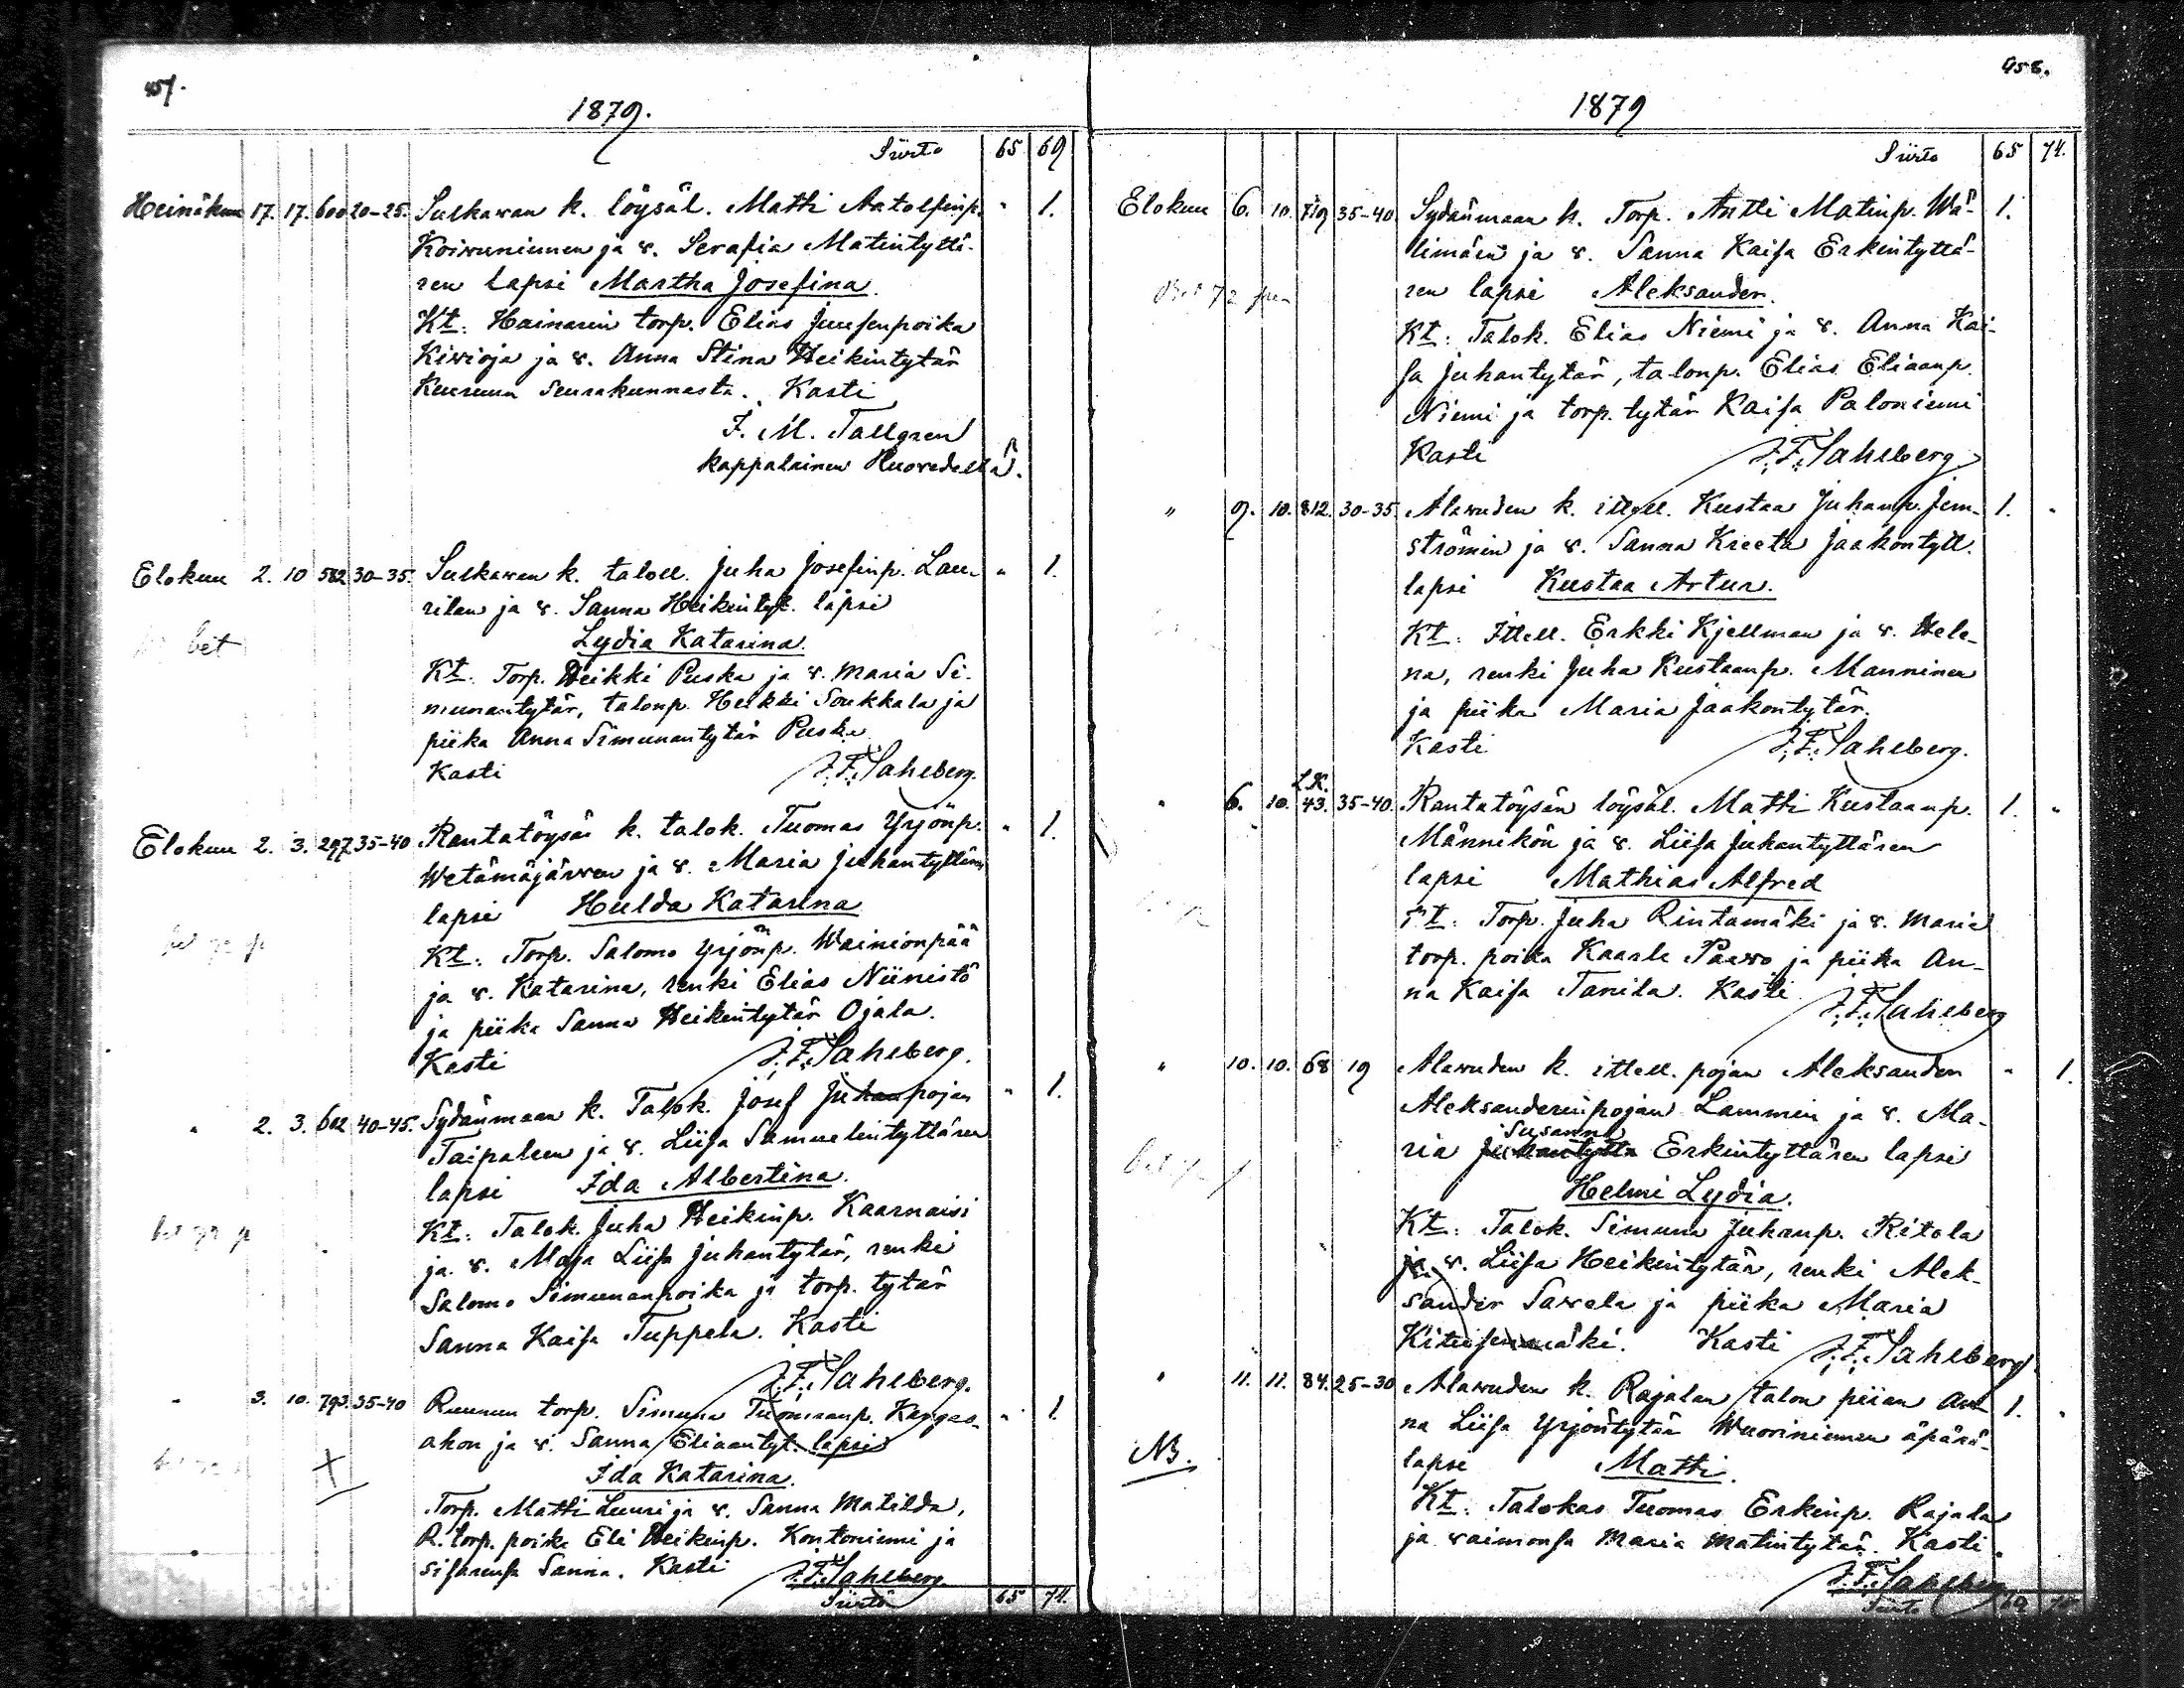 457.
1879.
Siirto 65 69
Heinäkuu 17. 17. 600 20-25. Sulkavan k. löysäl. Matti Aatolfinp. " 1.
Koivuniemen ja v. Serafia Matintyttä-
ren lapsi Martha Josefina.
Kt: Hainarin torp. Elias Juusenpoika
Kivioja ja v. Anna Stina Heikintytär
Keuruun seurakunnasta. Kasti
F. M. Tallgren
kappalainen Ruovedellä.
Elokuu 2. 10 582 30-35. Sulkavan k. taloll. Juha Josefinp. Lau- " 1.
rilan ja v. Sanna Heikintyt. lapsi
bet Lydia Katarina.
Kt: Torp. Heikki Puska ja v. Maria Si-
munantytär, talonp. Heikki Soukkala ja
piika Anna Simunantytär Puska
Kasti J.F. Sahlberg.
Elokuu 2. 3. 297 35-40 Rantatöysän k. talok. Tuomas Yrjönp. " 1.
Wetämäjärven ja v. Maria Juhantyttären
lapsi Hulda Katarina
Kt: Torp. Salomo Yrjönp. Wainionpää
ja v. Katarina, renki Elias Niinistö
ja piika Sanna Heikintytär Ojala.
Kasti J.F. Sahlberg.
" 2. 3. 602 40-45. Sydänmaan k. Talok. Josef Juhanpojan " 1.
Taipaleen ja v. Liisa Samuelintyttären
lapsi Ida Albertina.
Kt: Talok. Juha Heikinp. Kaarnaisi
ja v. Maja Liisa Juhantytär, renki
Salomo Simunanpoika ja torp. tytär
Sanna Kaisa Tuppela. Kasti
J.F. Sahlberg.
" 3. 10. 793. 35-40 Ruunun torp. Simuna Tuomaanp. Kangas- " 1.
ahon ja v. Sanna Eliaantyt. lapsi
Ida Katarina.
Torp. Matti Luuri ja v. Sanna Matilda,
R. torp. poika Eli Heikinp. Kontoniemi ja
sisarensa Sanna. Kasti J.F. Sahlberg.
Siirto 65 74.
458.
1879
Siirto 65 74.
Elokuu 6. 10. 719 35-40. Sydänmaan k. Torp. Antti Matinp. Wä- 1.
limäen ja v. Sanna Kaisa Erkintyttä-
ren lapsi Aleksander.
Kt: Talok. Elias Niemi ja v. Anna Kai-
sa Juhantytär, talonp. Elias Eliaanp.
Niemi ja torp. tytär Kaisa Paloniemi
Kasti J.F. Sahlberg
" 9. 10. 812. 30-35. Alavuden k. itsell. Kustaa Juhanp. Jern- 1. "
strömin ja v. Sanna Kreeta Jaakontytt.
lapsi Kustaa Artur.
Kt: Itsell. Erkki Kjellman ja v. Hele-
na, renki Juha Kustaanp. Manninen
ja piika Maria Jaakontytär.
Kasti J.F. Sahlberg.
" 6. 10. L.K. 43. 35-40. Rantatöysän löysäl. Matti Kustaanp. 1. "
Männikön ja v. Liisa Juhantyttären
lapsi Mathias Alfred
Kt: Torp. Juha Rintamäki ja v. Maria
torp. poika Kaarle Paavo ja piika An-
na Kaisa Tanila. Kasti J.F. Sahlberg
" 10. 10. 68 19 Alavuden k. itsell. pojan Aleksander " 1.
Aleksanderinpojan Lammin ja v. Ma-
Susanna
ria Juhantyttä Erkintyttären lapsi
Helmi Lydia.
Kt: Talok. Simuna Juhanp. Ritola
ja v. Liisa Heikintytär, renki Alek-
sander Savela ja piika Maria
Kasti J.F. Sahlberg
" 11. 11. 84. 25-30 Alavuden k. Rajalan talon piian An- 1. "
na Liisa Yrjöntytär Wuoriniemen äpärä-
NB. lapse Matti.
Kt: Talokas Tuomas Erkinp. Rajala
ja vaimonsa Maria Matintytär. Kasti
J.F. Sahlberg
Siirto